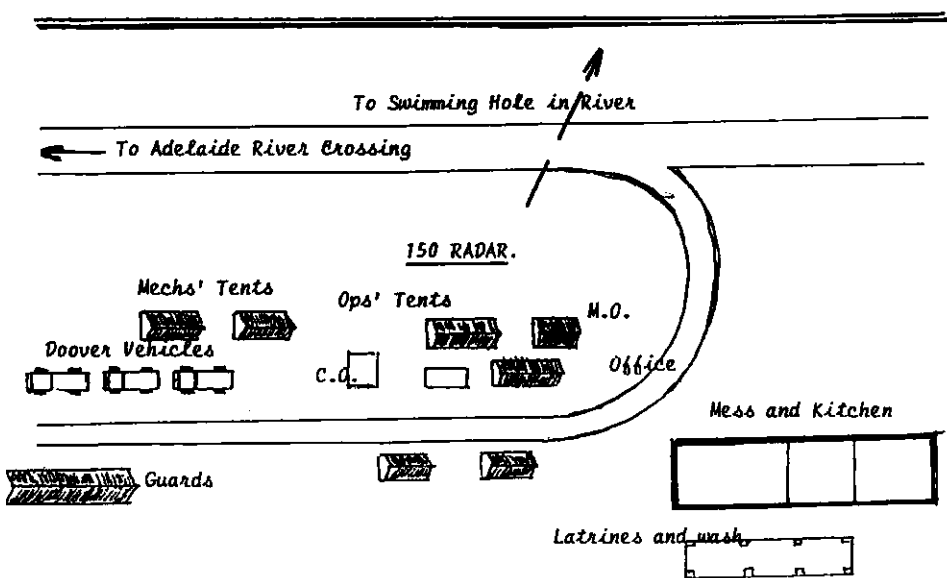 To Swimming Hole in River
To Adelaide River Crossing
150 RADAR.
Mechs' Tents
Ops' Tents
M.O.
Doover Vehicles
C.O.
Office
Mess and Kitchen
Guards
Latrines and wash